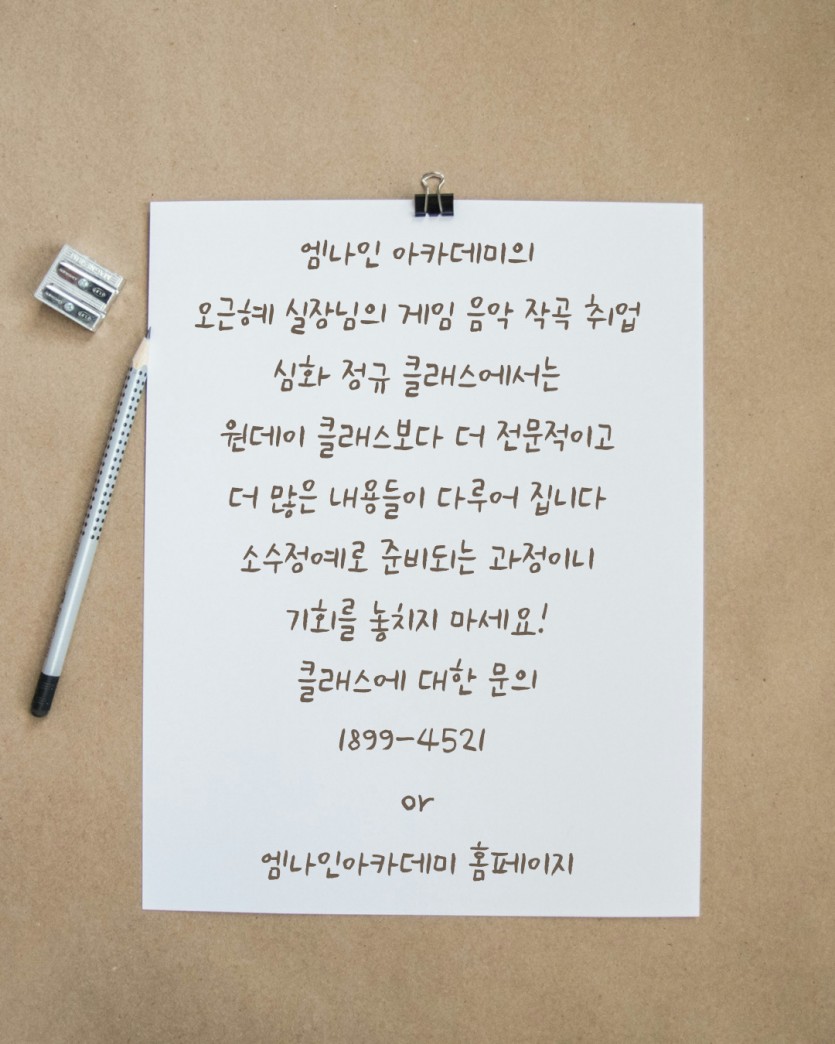 엠나인 아카데미의
오근혜 실장님의 게임 음악 작곡 취업
심화 정규 클래스에서는
원데이 클래스보다 더 전문적이고
더 많은 내용들이 다루어 집니다
소수정예로 준비되는 과정이니
기회를 놓치지 마세요!
클래스에 대한 문의
1899-4521
or
엠나인아카데미 홈페이지